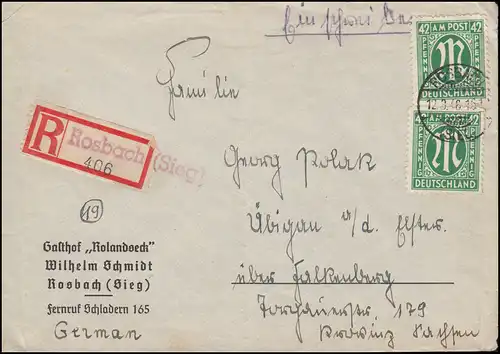 Einschreiben
42 AM POST 42
PFENNIG M PFENNIG
DEUTSCHLAND
12.3.46
42 AM POST 42
PFENNIG M PFENNIG
DEUTSCHLAND
Familie
R Rosbach (Sieg)
406
Georg Polak
Übigau a/d. Elster
über Falkenberg
Torgauerstr. 179
Provinz Sachsen
19
Gasthof „Rolandseck"
Wilhelm Schmidt
Rosbach (Sieg)
Fernruf Schladern 165
German